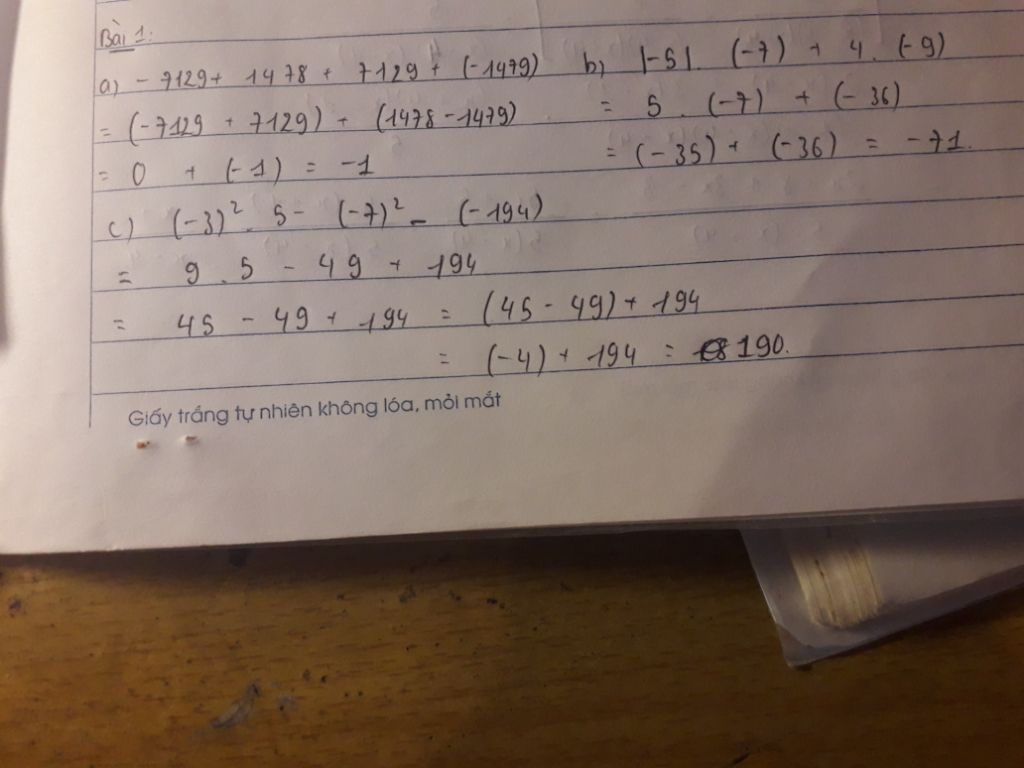 Bài 1:
a) - 7129 + 1478 + 7129 + (-1479)
= (-7129 + 7129) + (1478 - 1479)
= 0 + (-1) = -1
b) |-5| . (-7) + 4 . (-9)
= 5 . (-7) + (-36)
= (-35) + (-36) = -71.
c) (-3)² . 5 - (-7)² - (-194)
= 9 . 5 - 49 + 194
= 45 - 49 + 194 = (45 - 49) + 194
= (-4) + 194 = 190.
Giấy trắng tự nhiên không lóa, mỏi mắt